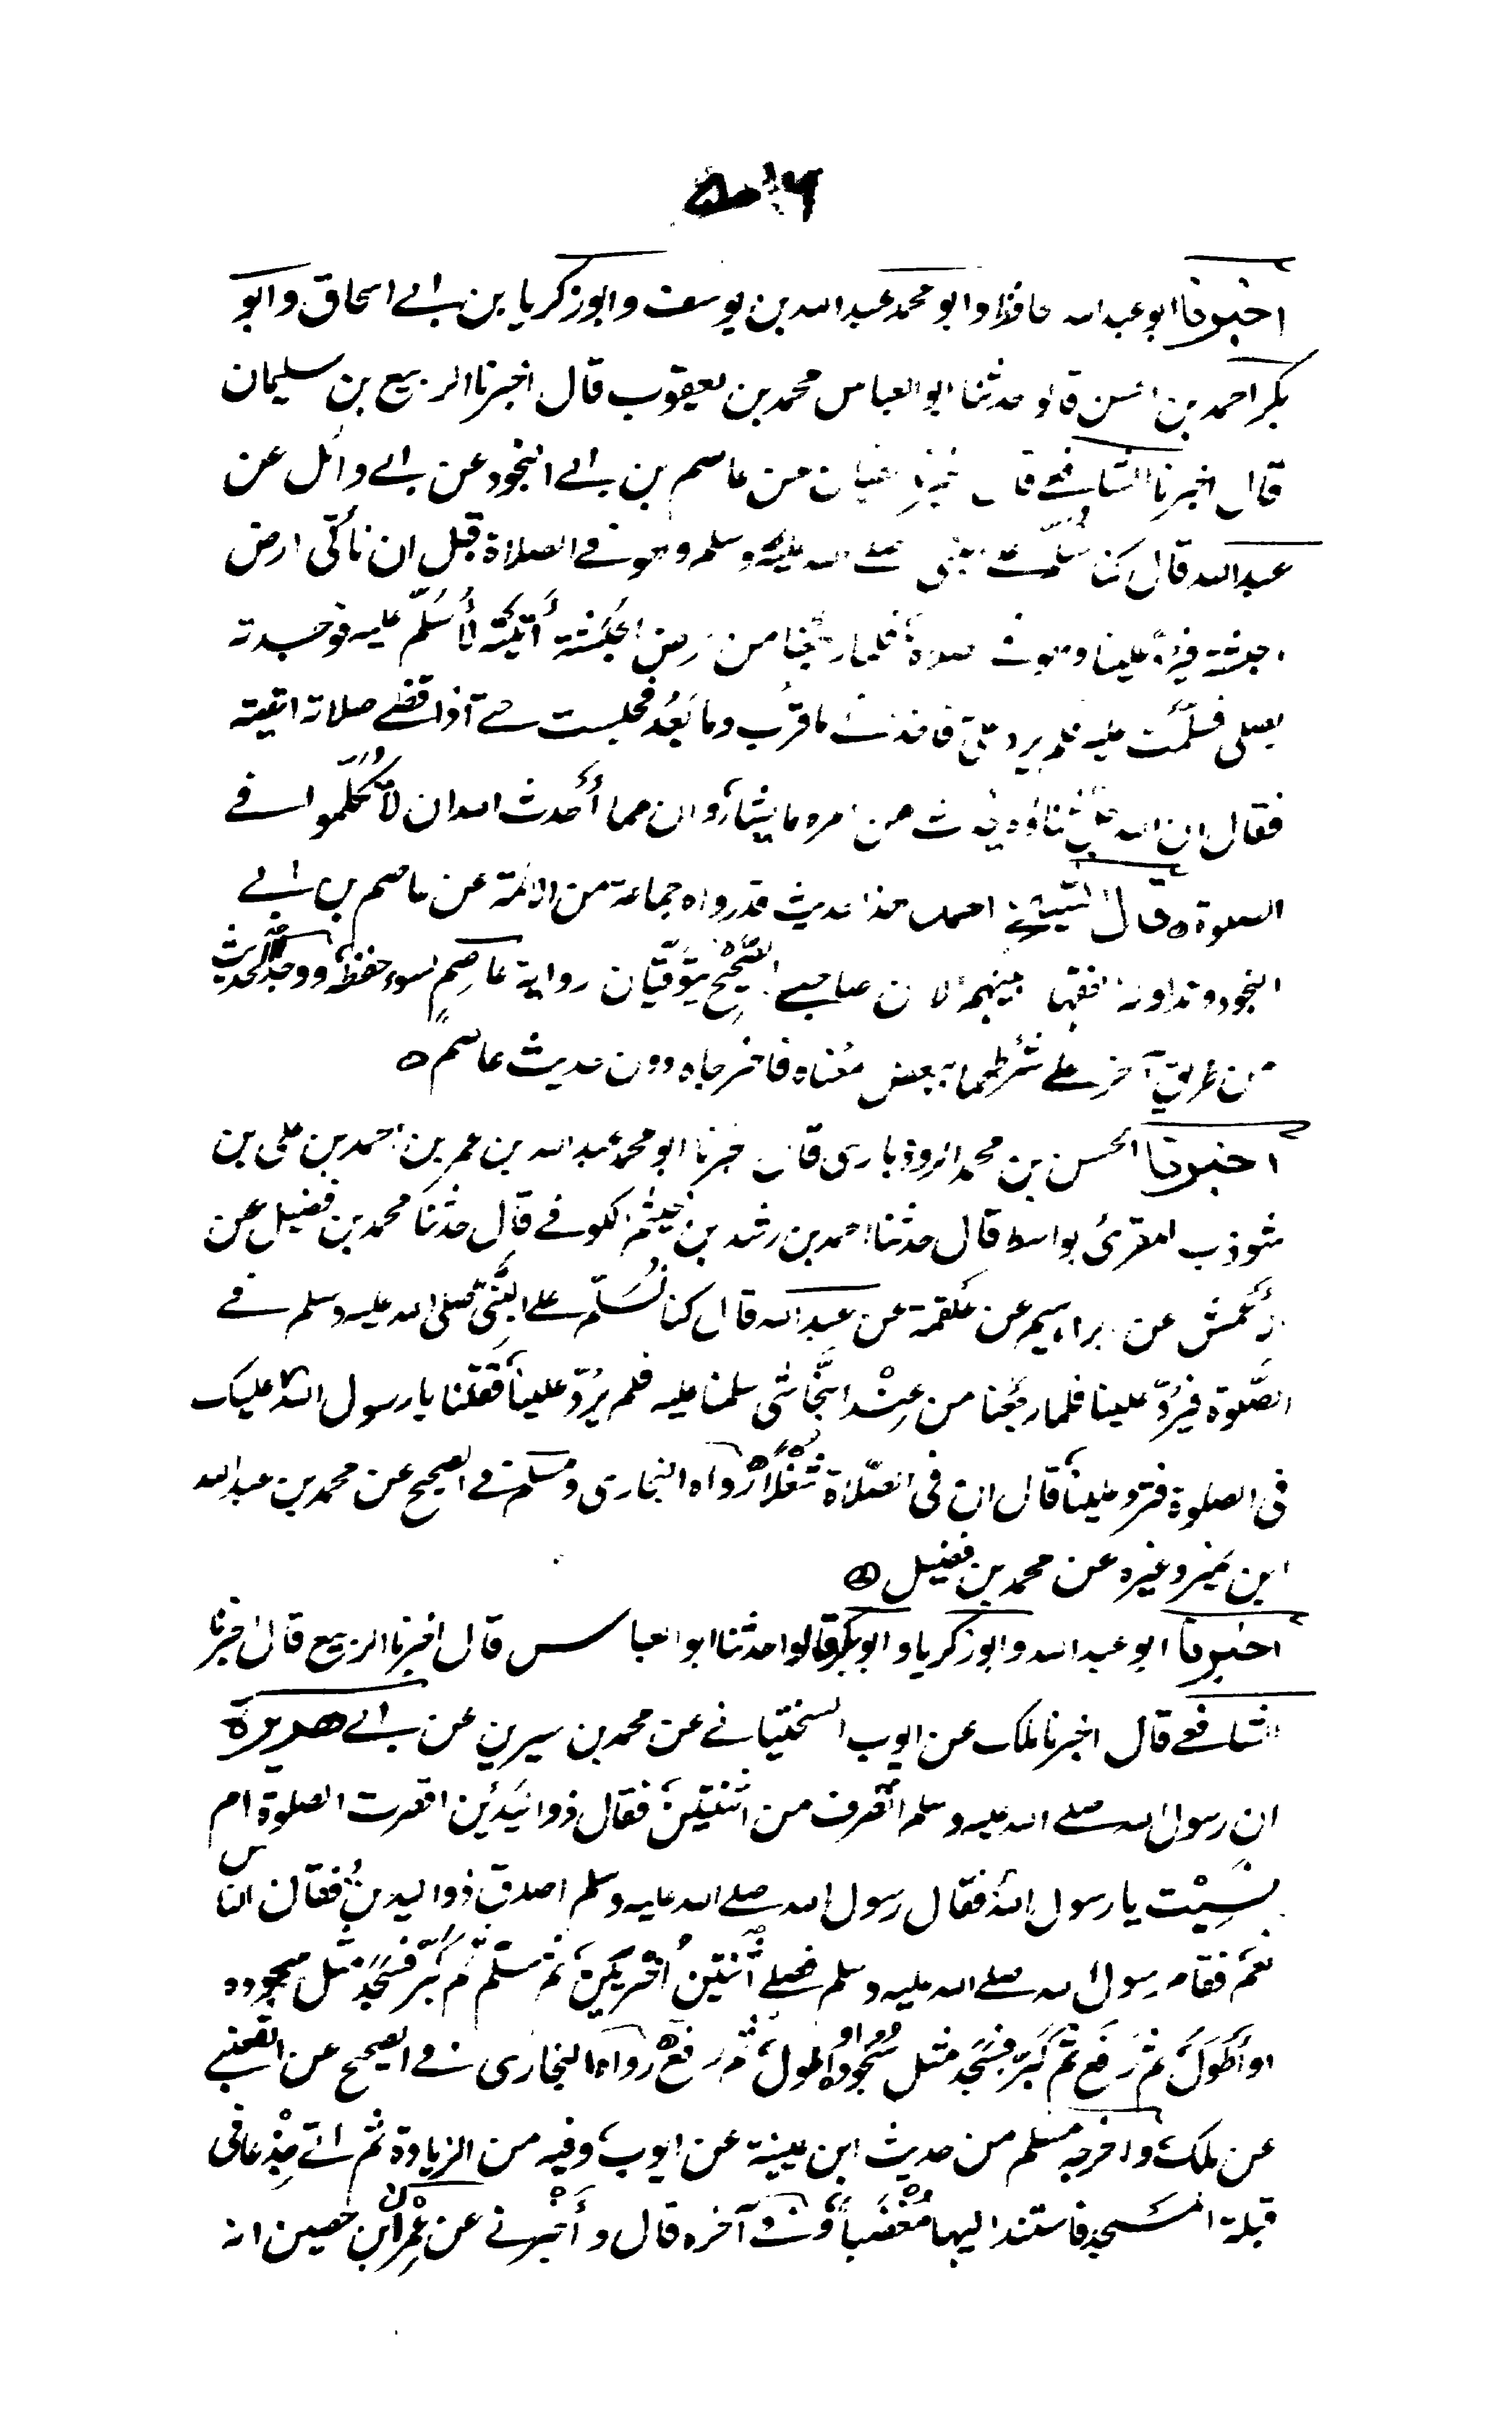 ٥٠٦
اخبرنا ابو عبد الله حافظ وابو محمد عبد الله بن يوسف وابو زكريا بن ابي اسحاق وابو
بكر احمد بن الحسن قالو حدثنا ابو العباس محمد بن يعقوب قال اخبرنا الربيع بن سليمان
قال اخبرنا الشافعي قال سفيان عن عاصم بن ابي النجود عن ابي وائل عن
عبد الله قال كنا نسلم على النبي صلى الله عليه وسلم وهو في الصلاة قبل ان نأتي ارض
الحبشة فيرد علينا وهو في الصلاة فلما رجعنا من ارض الحبشة أتيته لأسلم عليه فوجدته
يصلي فسلمت عليه فلم يرد علي فاخذني ما قرب وما بعد فجلست حتى اذا قضى صلاته اتيته
فقال ان الله جل ثناؤه يحدث من امره ما يشاء وان مما أحدث الله ان لا تكلموا في
الصلوة ٥ قال الشيخ احمد هذا حديث قد رواه جماعة من الائمة عن عاصم بن ابي
النجود وتداوله الفقهاء بينهم الا ان صاحبي الصحيح يتوقيان رواية عاصم لسوء حفظه ووجد الحديث
من طريق آخر على شرطهما ببعض معناه فاخرجاه دون حديث عاصم ٥
اخبرنا الحسن بن محمد الروذباري قال اخبرنا ابو محمد عبد الله بن عمر بن احمد بن علي بن
شوذب المقرئ بواسط قال حدثنا احمد بن رشد بن خيثم الكوفي قال حدثنا محمد بن فضيل عن
الاعمش عن ابراهيم عن علقمة عن عبد الله قال كنا نسلم على النبي صلى الله عليه وسلم في
الصلوة فيرد علينا فلما رجعنا من عند النجاشي سلمنا عليه فلم يرد علينا فقلنا يا رسول الله عليك
في الصلوة فترد علينا قال ان في الصلاة شغلا ٥ رواه البخاري ومسلم في الصحيح عن محمد بن عبد الله
ابن نمير وغيره عن محمد بن فضيل ٥
اخبرنا ابو عبد الله وابو زكريا وابو بكر قالوا حدثنا ابو العباس قال اخبرنا الربيع قال اخبرنا
الشافعي قال اخبرنا ملك عن ايوب السختياني عن محمد بن سيرين عن ابي هريرة
ان رسول الله صلى الله عليه وسلم انصرف من اثنتين فقال ذو اليدين اقصرت الصلوة ام
نسيت يا رسول الله فقال رسول الله صلى الله عليه وسلم اصدق ذو اليدين فقال الناس
نعم فقام رسول الله صلى الله عليه وسلم فصلى اثنتين اخريين ثم سلم ثم كبر فسجد مثل سجوده
او اطول ثم رفع ثم كبر فسجد مثل سجوده او اطول ثم رفع ٥ رواه البخاري في الصحيح عن القعنبي
عن ملك واخرجه مسلم من حديث ابن عيينة عن ايوب وفيه من الزيادة ثم اتى جذعا في
قبلة المسجد فاستند اليها مغضبا وفي آخره قال وأخبرني عن عمران بن حصين انه